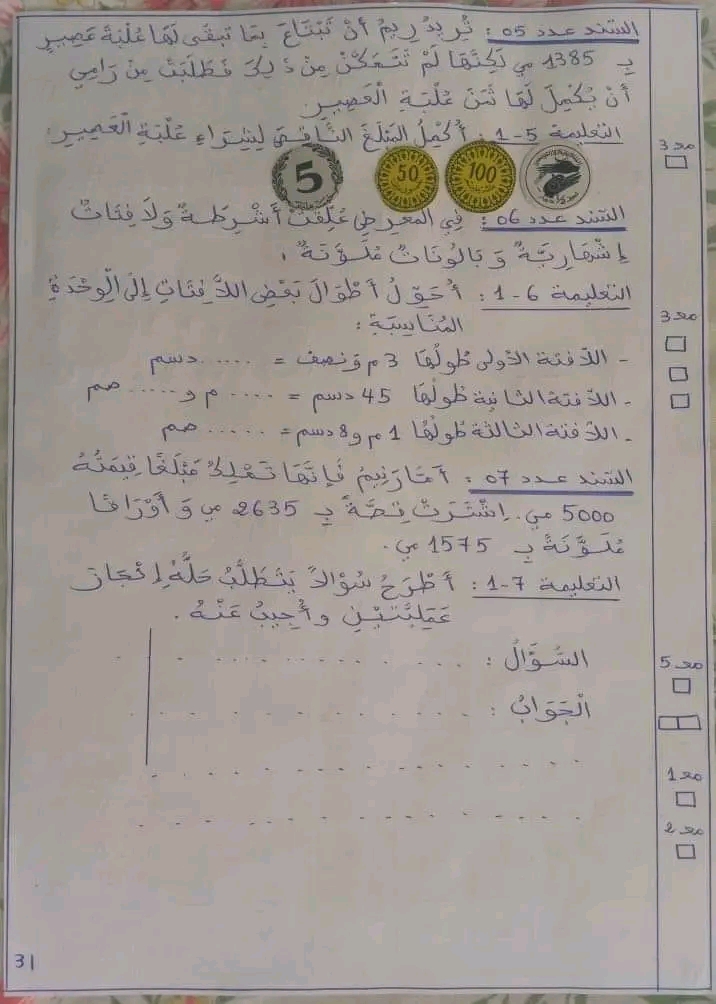 السّند عدد 05 : تُرِيدُ رِيمُ أَنْ تَبْتَاعَ بِمَا تَبَقَّى لَهَا عُلْبَةَ عَصِيرٍ
بِ 1385 مي لَكِنَّهَا لَمْ تَتَمَكَّنْ مِنْ ذَلِكَ فَطَلَبَتْ مِنْ رَامِي
أَنْ يُكْمِلَ لَهَا ثَمَنَ عُلْبَةِ الْعَصِيرِ
التعليمة 5-1 : أُكْمِلُ المَبْلَغَ النَّاقِصَ لِشِرَاءِ عُلْبَةِ الْعَصِيرِ:
مع 3
5 50 100
السّند عدد 06 : فِي المَعْرِضِ عُلِّقَتْ أَشْرِطَةٌ وَلاَفِتَاتٌ
إِشْهَارِيَّةٌ وَ بَالُونَاتٌ مُلَوَّنَةٌ .
التعليمة 6-1 : أُحَوِّلُ أَطْوَالَ بَعْضِ اللاَّفِتَاتِ إِلَى الْوِحْدَةِ
المُنَاسِبَةِ :
مع 3
- اللاّفتة الأولى طُولُهَا 3 م ونصف = ...... دسم
- اللاّفتة الثانية طُولُهَا 45 دسم = ..... م و ...... صم
- اللاّفتة الثالثة طُولُهَا 1 م و 8 دسم = ...... صم
السّند عدد 07 : أَمَّا رَنِيمُ فَإِنَّهَا تَمْلِكُ مَبْلَغًا قِيمَتُهُ
5000 مي. اِشْتَرَتْ قِصَّةً بِ 2635 مي وَ أَوْرَاقًا
مُلَوَّنَةً بِ 1575 مي.
التعليمة 7-1 : أَطْرَحُ سُؤَالاً يَتَطَلَّبُ حَلُّهُ إِنْجَازَ
عَمَلِيَّتَيْنِ وأُجِيبُ عَنْهُ .
السُّؤَالُ : . . . . . . . . . .
مع 5
الْجَوَابُ : . . . . . . . . . .
مع 1
مع 2
31